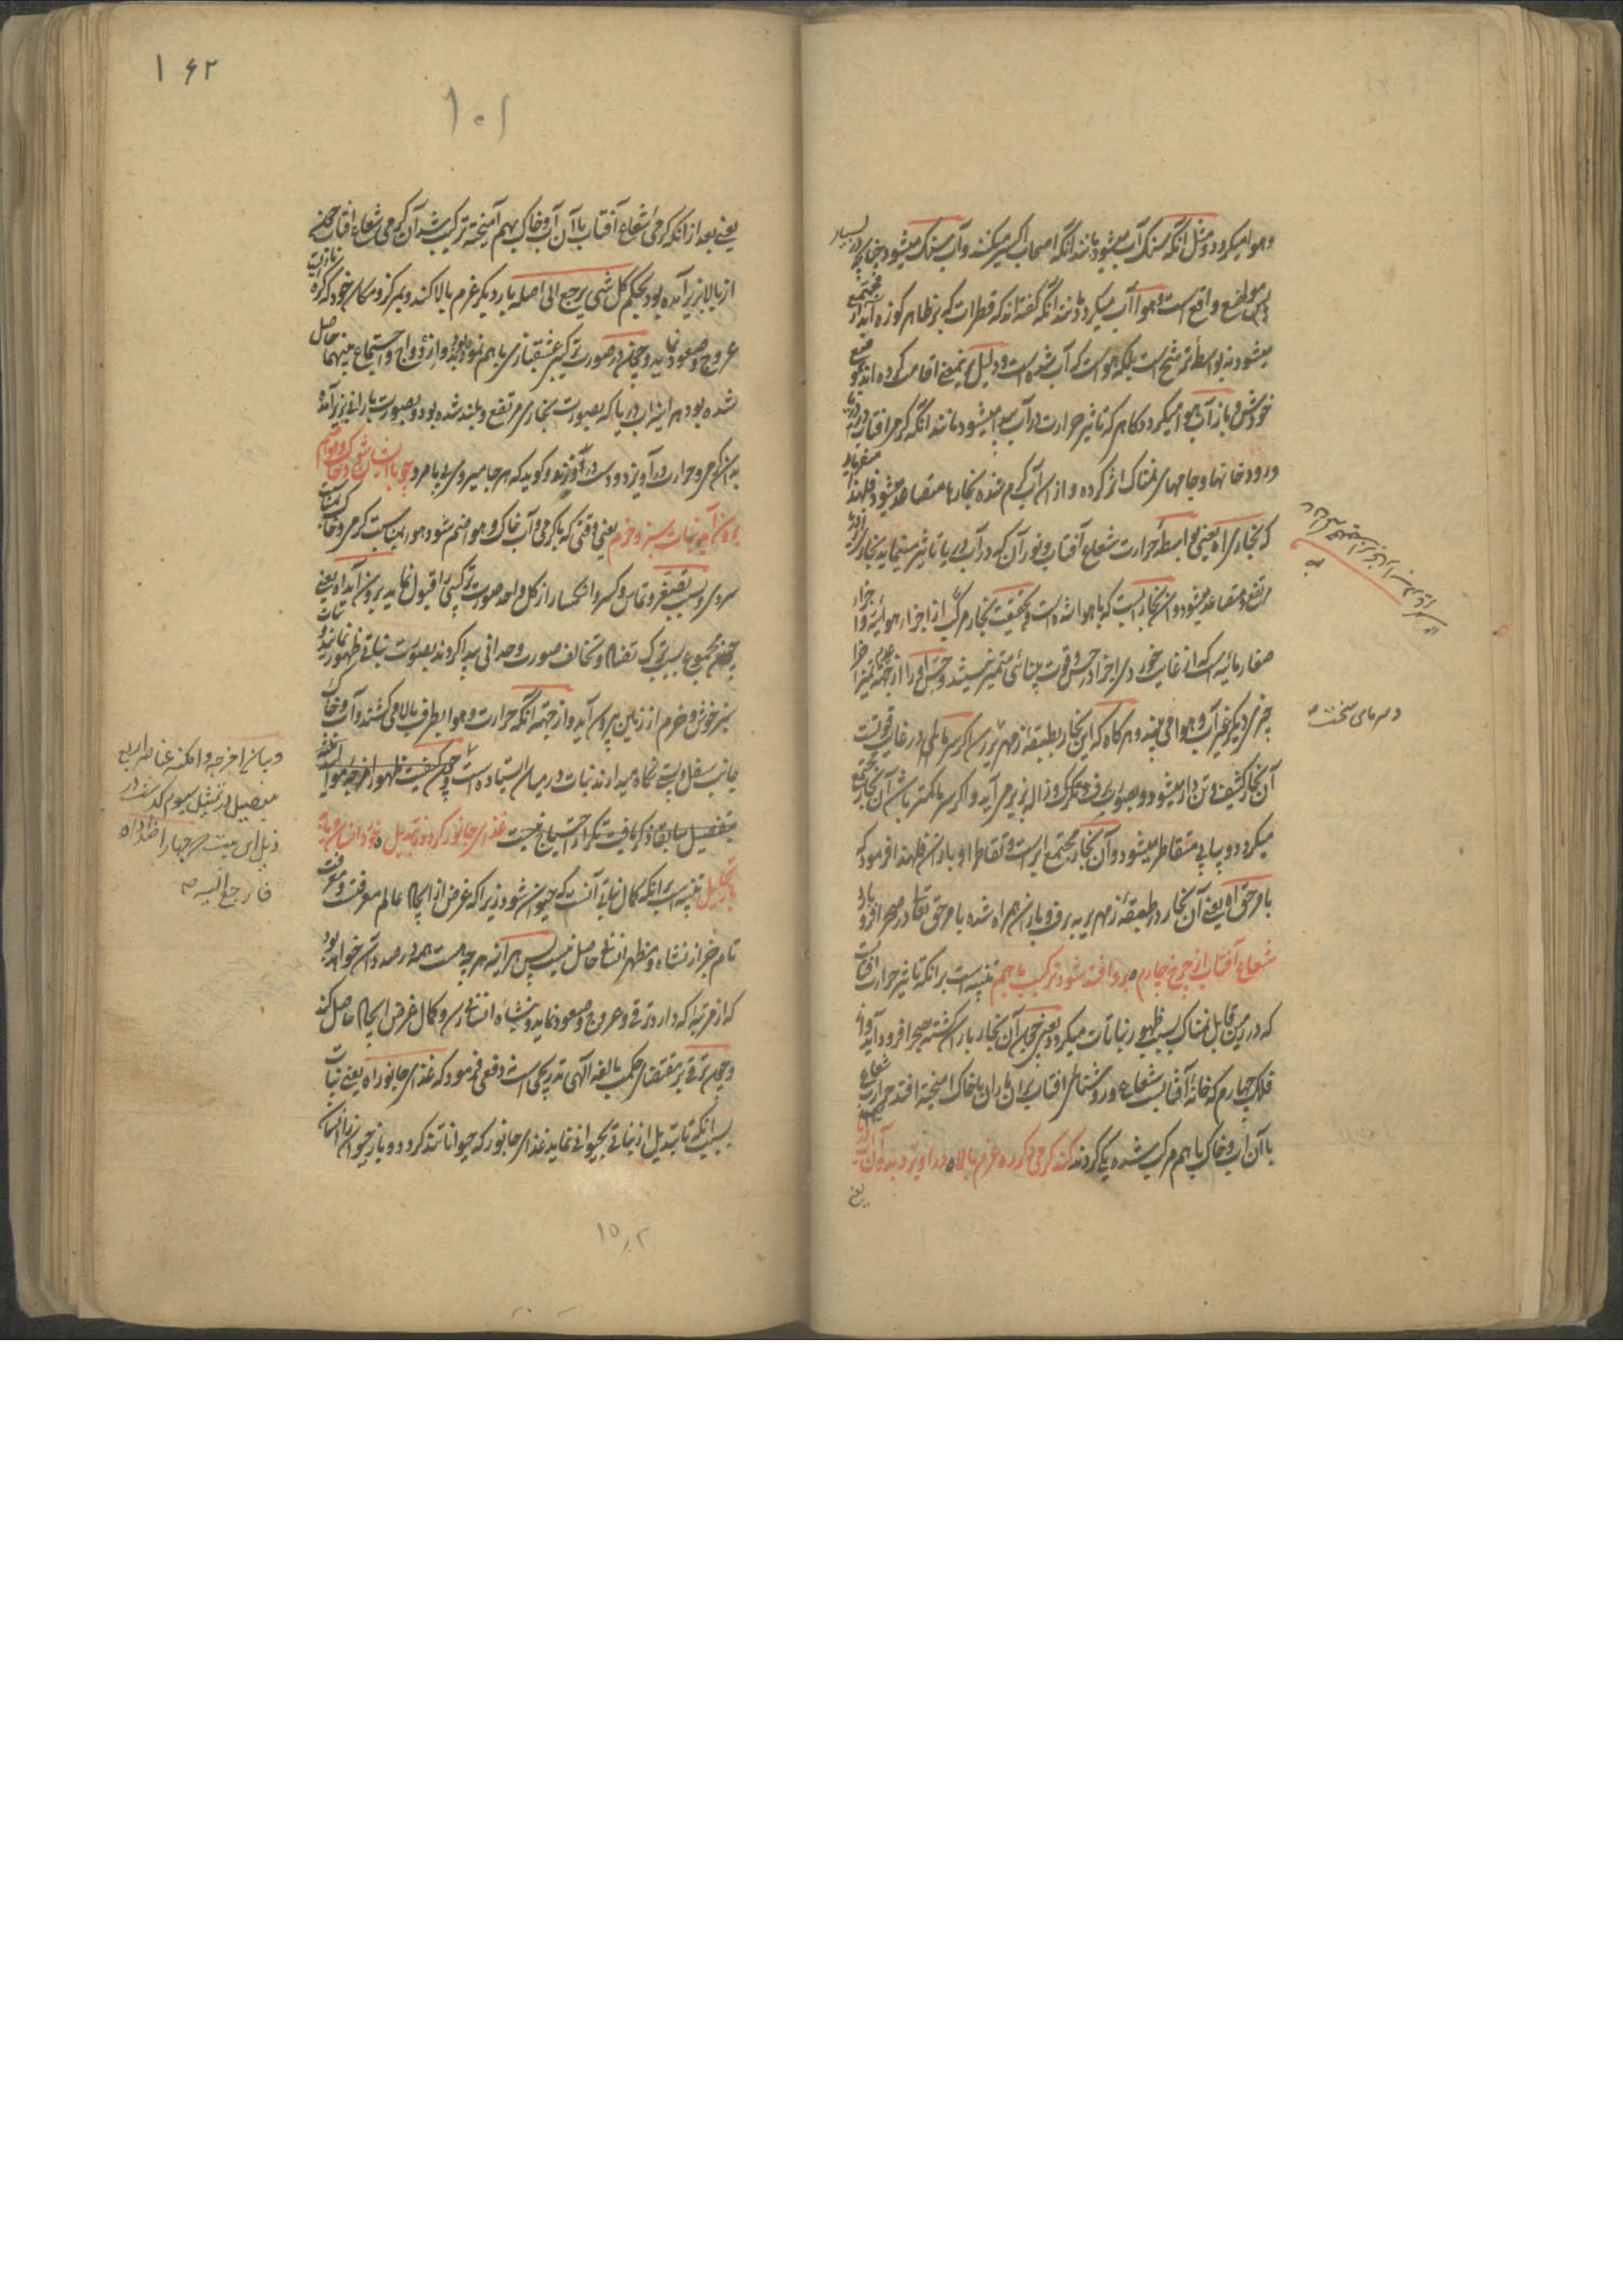 و هوا میگردد و مثل آنکه سنگ آب میشود مانند آنکه اصحاب اکسیر میکنند و آب سنگ میشود چنانچه در بسیار
مواضع واقع است و هوا آب میگردد مانند آنکه گفته‌اند که قطرات که بر ظاهر کوزه آبدار مجتمع
میشود نه بواسطه ترشح است بلکه هواست که آب شده است و دلیل بر نیمعنی اقامت کرده‌اند
خودش و باز آب هوا میگردد گاهی که تاثیر حرارت در آب میشود مانند آنکه گرمی آفتاب
در رودخانها و جامهای نمناک اثر کرده و از آن آب گرم شده بخارها متصاعد میشود فلهذا میفرماید
که بخاری اه یعنی بواسطه حرارت شعاع آفتاب و نور آن که در آب دریا تاثیر مینماید بخاری از دریا
مرتفع و متصاعد میشود و آن بخاریست که با هوا شده است و بحقیقت بخار مرکب از اجزاء هوائیه و اجزاء
صغار مائیه است که از غایت خوردی اجزا در حس و قوت بینائی متمیز نیستند و حس او را از جهة عدم تمیز اجزا
چیزی دیگر غیر آب و هوا می بیند و هر گاه که این بخار بطبقه زمهریر رسد اگر سرمای در غایت قوتست
آن بخار کثیف و تن دار میشود و بصورت برف و تگرگ و ژاله بزیر می آید و اگر سرما کمتر باشد آن بخار مجتمع
میگردد و پیاپی متقاطر میشود و آن بخار مجتمع ابر است و تقاطر او باران فلهذا فرمود که
بامر حق اه یعنی آن بخار در طبقه زمهریر به برف و باران همراه شده بامر حق تعالی در صحرا فرو بارد
شعاع آفتاب از چرخ چارم ٥ برو افتد شود ترکیب باهم تنبیه است بر آنکه تاثیر حرارت آفتاب
که در زمین قابل نمناک سبب ظهور نباتات میگردد یعنی چون آن بخار باران گشته بصحرا فرود آید و از
فلک چهارم که خانه آفتابست شعاع و روشنائی آفتاب بران باران با خاک آمیخته افتد حرارت شعاع
با آن آب و خاک باهم مرکب شده یکی گردند کند گرمی دگر ره عزم بالا ٥ در آویزد بدو آن آب دریا
یعنی
و سرمای سخت
۱۶۲
۱۰۱
یعنی بعد از آنکه گرمی شعاع آفتاب با آن آب و خاک بهم آمیخته ترکیب شد آن گرمی شعاع آفتاب که
از بالا بزیر آمده بود بحکم کل شئ یرجع الی اصله بار دیگر عزم بالا کند و بمرکز و مکان خود که کره نار است
عروج و صعود نماید و چون در صورت ترکیب عشقبازی باهم نموده بودند و ازدواج و اجتماع بینهما حاصل
شده بود هر آینه آب دریا که بصورت بخاری مرتفع و بلند شده بود و بصورت باران بزیر آمده
بدان گرمی و حرارت در آویزد و دست در و زند و گوید که هر جا میروی بی ما مرو چو با ایشان شود خاک و هوا ضم
برون آید نبات سبز و خرم یعنی وقتی که با گرمی و آب خاک و هوا ضم شود و هوا مناسبت گرمی و خاک بمناسبت
سردی و بسبب تصغر و تماس و کسر و انکسار از کل واحد صورت ترکیبی را قبول نماید برون آید اه یعنی
چون مجموع بسبب ترک تضاد و تخالف صورت وحدانی پیدا کردند بصورت نباتی ظهور نمایند و نبات
سبز خوش و خرم از زمین بیرون آید و از جهة آنکه حرارت و هوا بطرف بالا می کشند و آب و خاک
جانب سفل و پستی نگاه میدارند نبات در میان ایستاده است و چون کیفیت ظهور امزجه و موالید ثلثه
بتفصیل سابقا ذکر یافت تکرار احتیاج نیست غذای جانور گردد ز تبدیل ٥ خورد انسان و یابد
باز تحلیل تنبیه است بر آنکه کمال نباتی آنست که حیوان شود زیرا که غرض از ایجاد عالم معرفت و معرفت
تام جز از نشاه و مظهر انسانی حاصل نیست پس هر آینه هر چه هست همه در صدد آن خواهد بود
که از مرتبه که دارد ترقی و عروج و صعود نماید و بنشاه انسانی رسد و کمال غرض ایجاد حاصل کند
و چون ترقی بر مقتضای حکمت بالغه الهی تدریجی است نه دفعی فرمود که غذای جانور اه یعنی نبات
بسبب آنکه تا تبدیل از نباتی بحیوانی نماید غذای جانور که حیواناتند گردد و باز حیوان را انسان
و بیان امزجه و امکنه عناصر اربعه
بتفصیل در تمثیل سیوم گذشت در
ذیل این بیت که چهار اضداد اه
فارجع الیه
۱۵۰۲